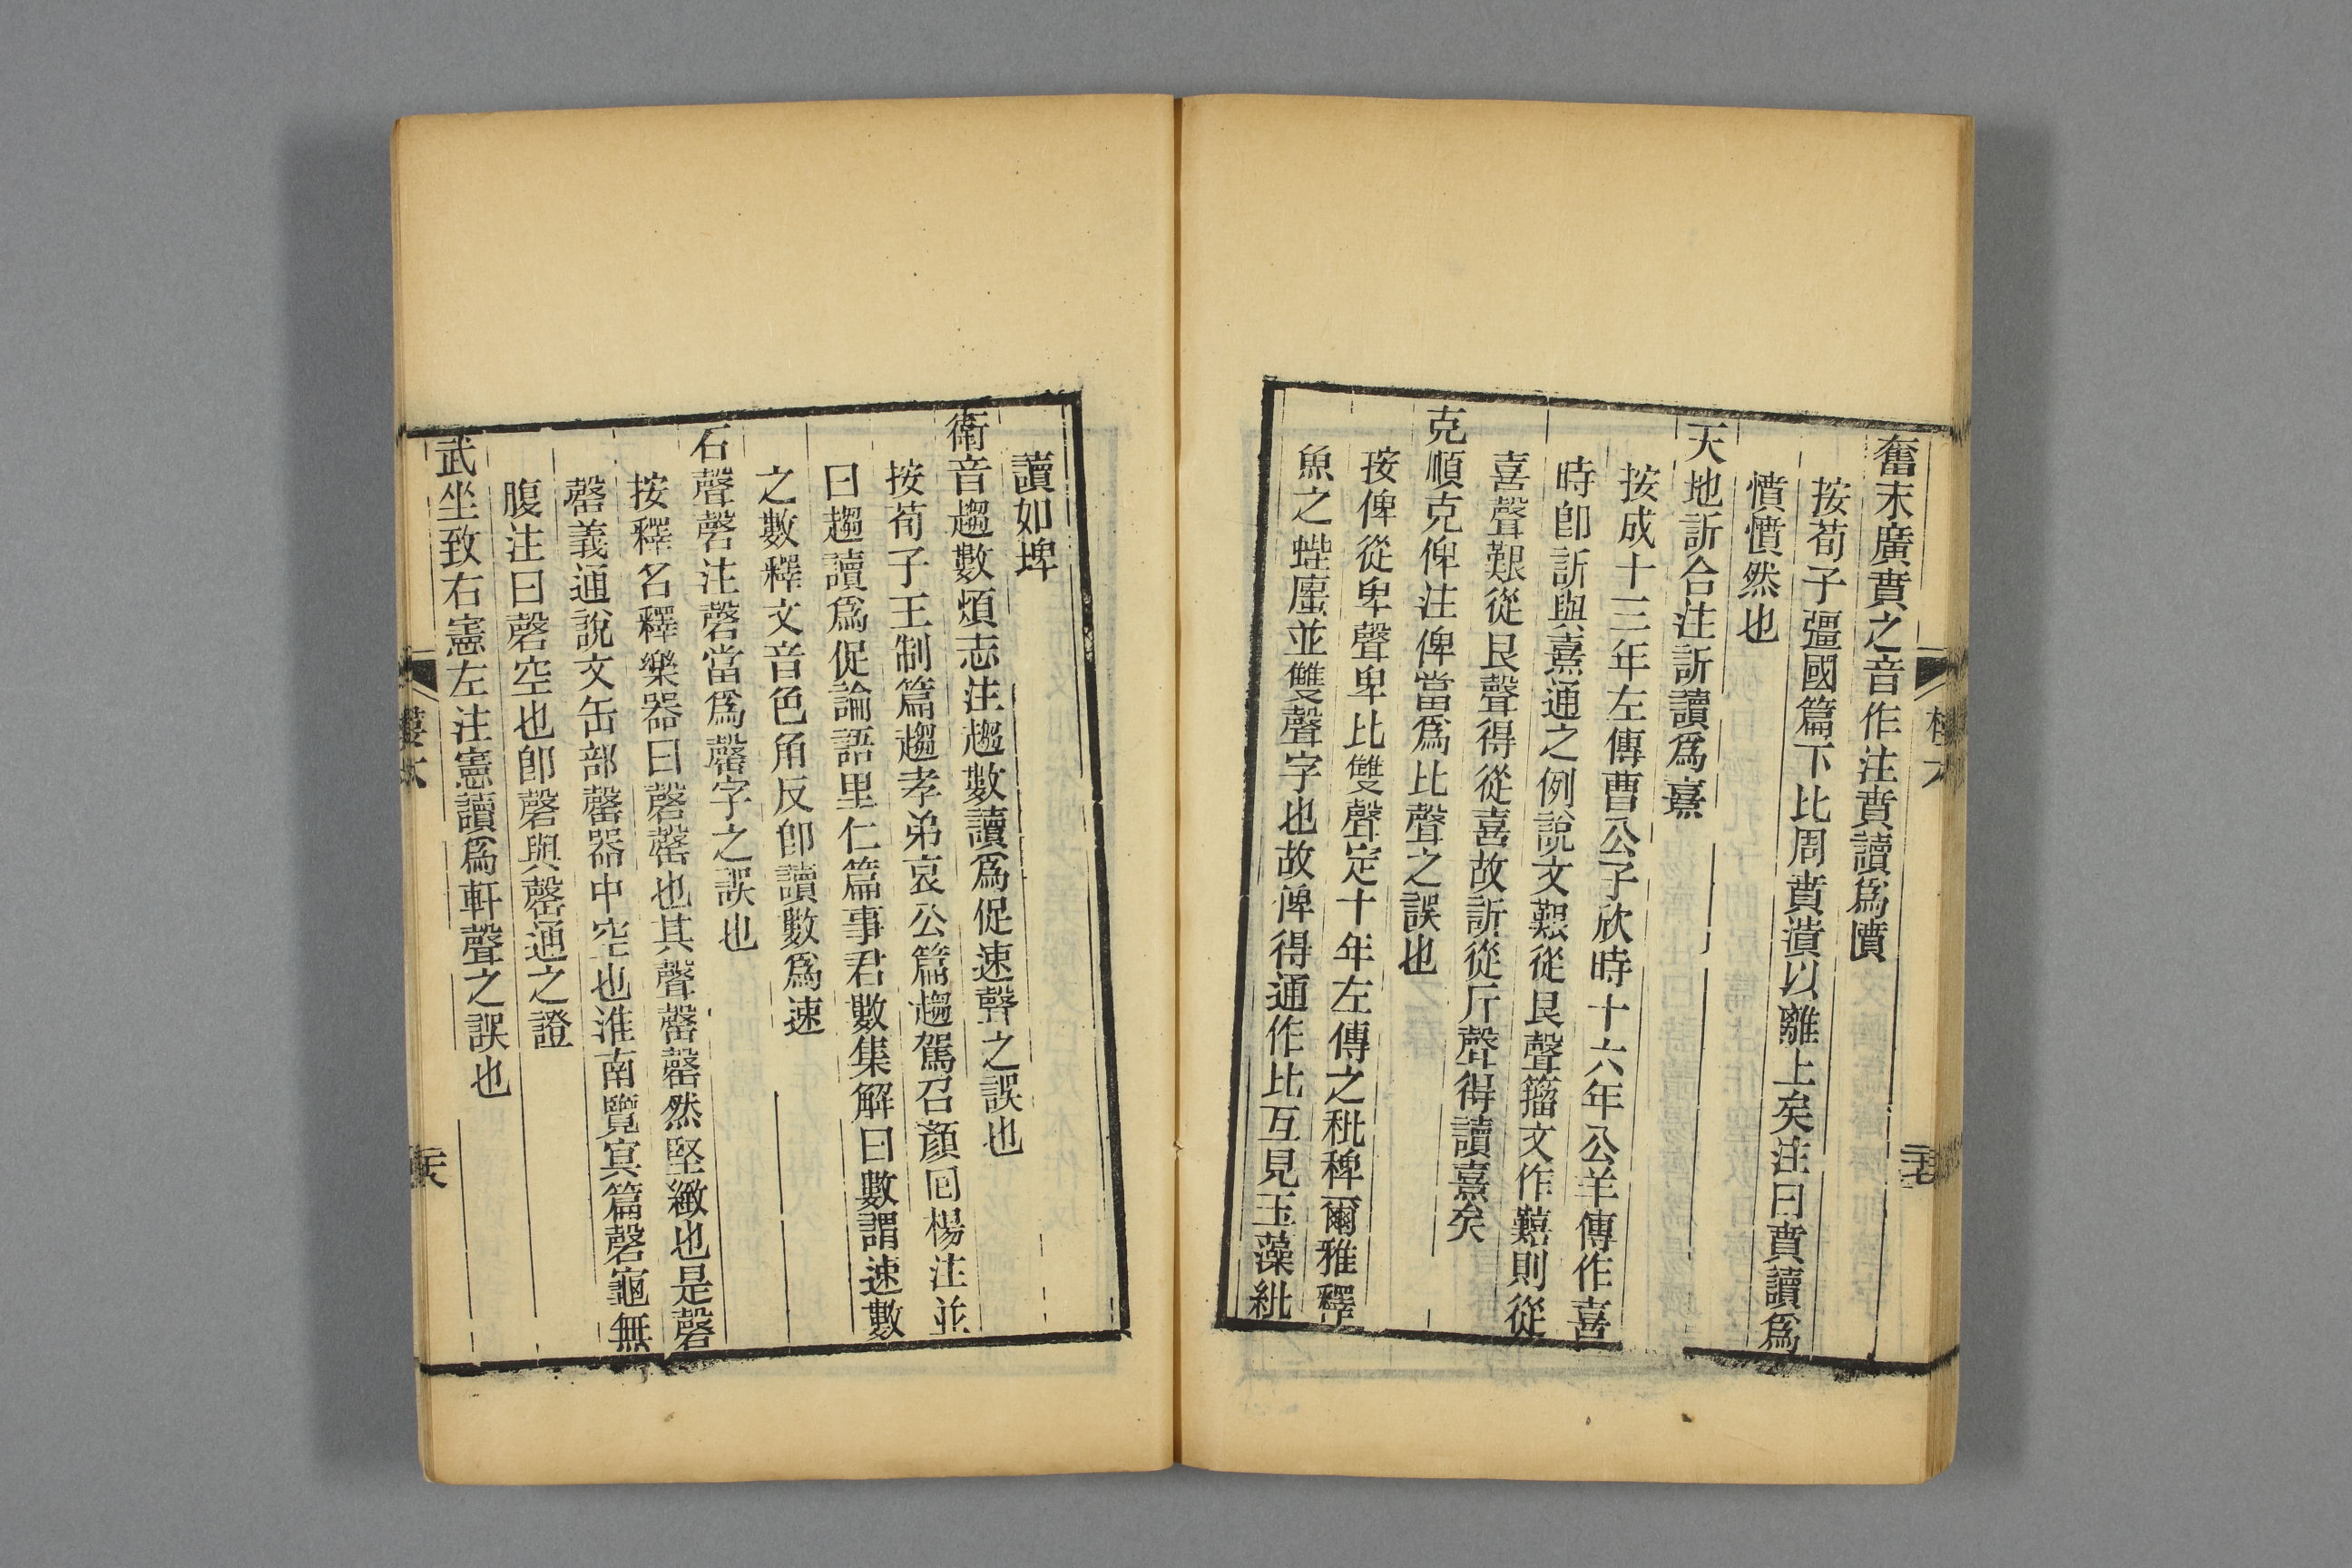 奮末廣賁之音作注賁讀爲憤
按荀子彊國篇下比周賁潰以離上矣注曰賁讀爲
憤憤然也
天地訢合注訢讀爲熹
按成十三年左傳曹公子欣時十六年公羊傳作喜
時卽訢與熹通之例說文艱從艮聲籒文作囏則從
喜聲艱從艮聲得從喜故訢從斤聲得讀熹矣
克順克俾注俾當爲比聲之誤也
按俾從卑聲卑比雙聲定十年左傳之秕稗爾雅釋
魚之蜌𧓎並雙聲字也故俾得通作比互見玉藻紕
讀如埤
衛音趨數煩志注趨數讀爲促速聲之誤也
按荀子王制篇趨孝弟哀公篇趨駕召顏回楊注並
曰趨讀爲促論語里仁篇事君數集解曰數謂速數
之數釋文音色角反卽讀數爲速
石聲磬注磬當爲罄字之誤也
按釋名釋樂器曰磬罄也其聲罄罄然堅緻也是磬
罄義通說文缶部罄器中空也淮南覽冥篇磬龜無
腹注曰磬空也卽磬與罄通之證
武坐致右憲左注憲讀爲軒聲之誤也